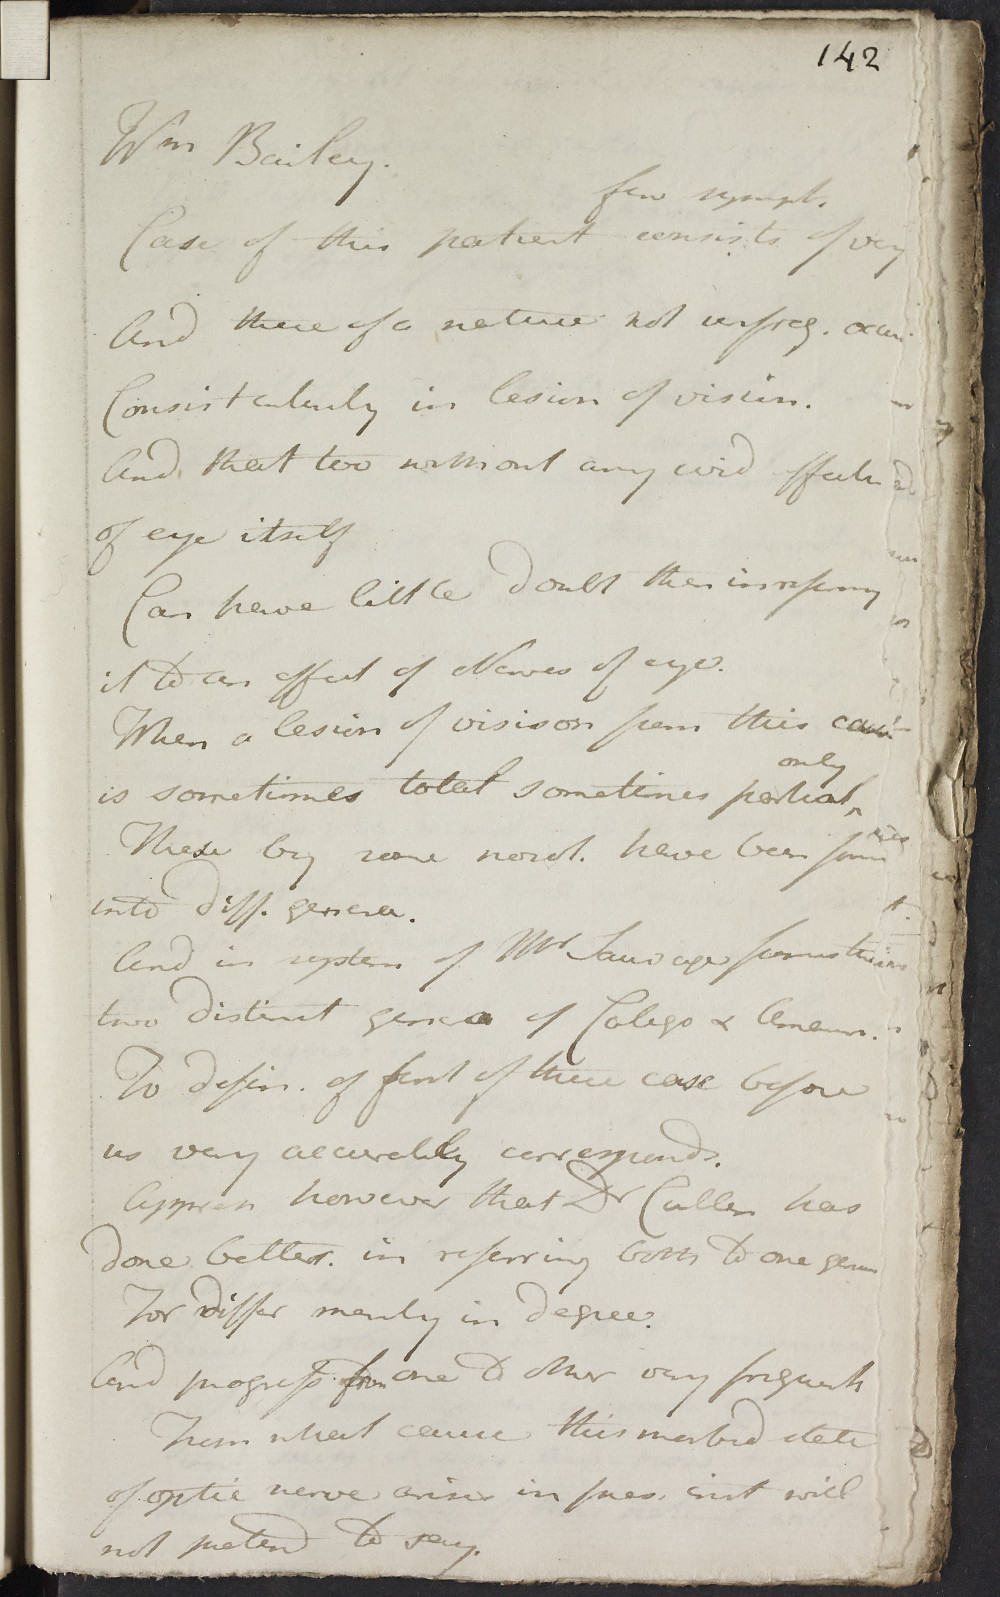 142
Wm Bailey.
few sympt.
Case of this patient consists of very
And these of a nature not unfreq. occur
Consist entirely in lesion of vision.
And that too without any evid affectn
of eye itself
Can have little doubt then in referring
it to an affect of Nerves of eye.
When a lesion of visison from this cause
only
is sometimes total sometimes partial ^
These by some nosol. have been form
into diff. genera.
And in system of Mr Sauvage forms these
two distinct genera of Caligo & Amaur.
To defin. of first of these case before
us very accurately corresponds.
Appreh however that Dr Cullen has
done better. in referring both to one genus
For differ merely in degree.
And progress from one to other very frequent
From what cause this morbid state
of optic nerve arises in pres. inst will
not pretend to say.